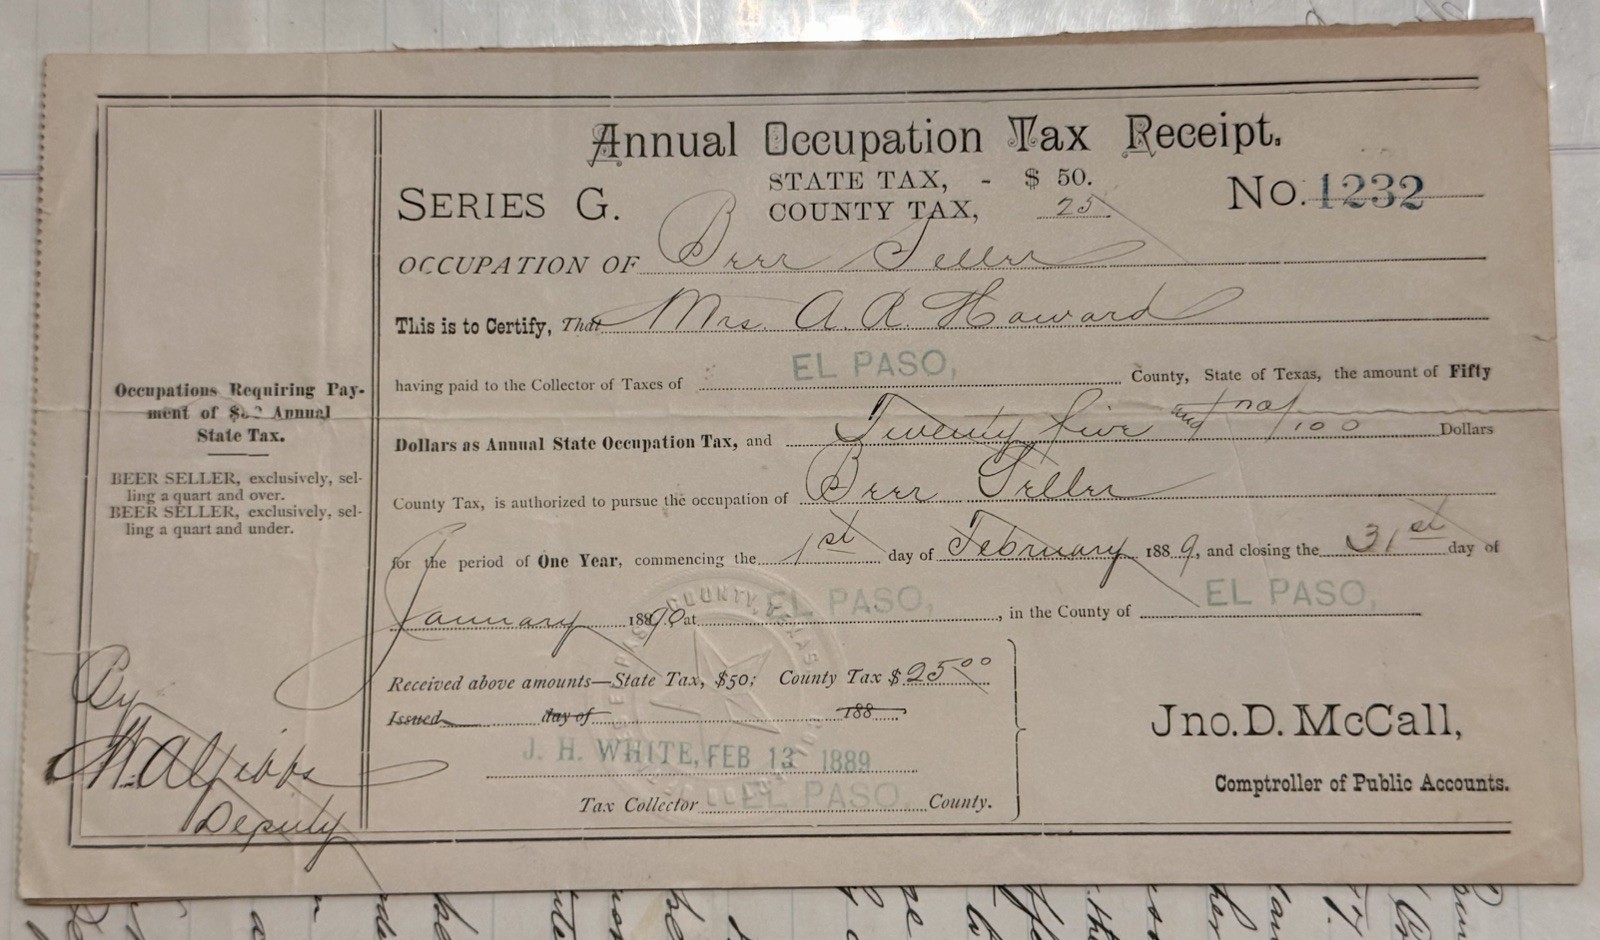 Annual Occupation Tax Receipt.
SERIES G.
STATE TAX, - $ 50.
COUNTY TAX, 25
No. 1232
OCCUPATION OF Beer Seller
This is to Certify, That Mrs. A. R. Howard
having paid to the Collector of Taxes of EL PASO, County, State of Texas, the amount of Fifty
Dollars as Annual State Occupation Tax, and Twenty five and no/100 Dollars
County Tax, is authorized to pursue the occupation of Beer Seller
for the period of One Year, commencing the 1st day of February 1889, and closing the 31st day of
January 1890, at EL PASO, in the County of EL PASO,
Received above amounts—State Tax, $50; County Tax $25.00
Issued day of 188
J. H. WHITE, FEB 13 1889
Tax Collector EL PASO County.
Jno. D. McCall,
Comptroller of Public Accounts.
Occupations Requiring Pay-
ment of Annual
State Tax.
BEER SELLER, exclusively, sel-
ling a quart and over.
BEER SELLER, exclusively, sel-
ling a quart and under.
By
W. A. Gibbs
Deputy
COUNTY, TEXAS